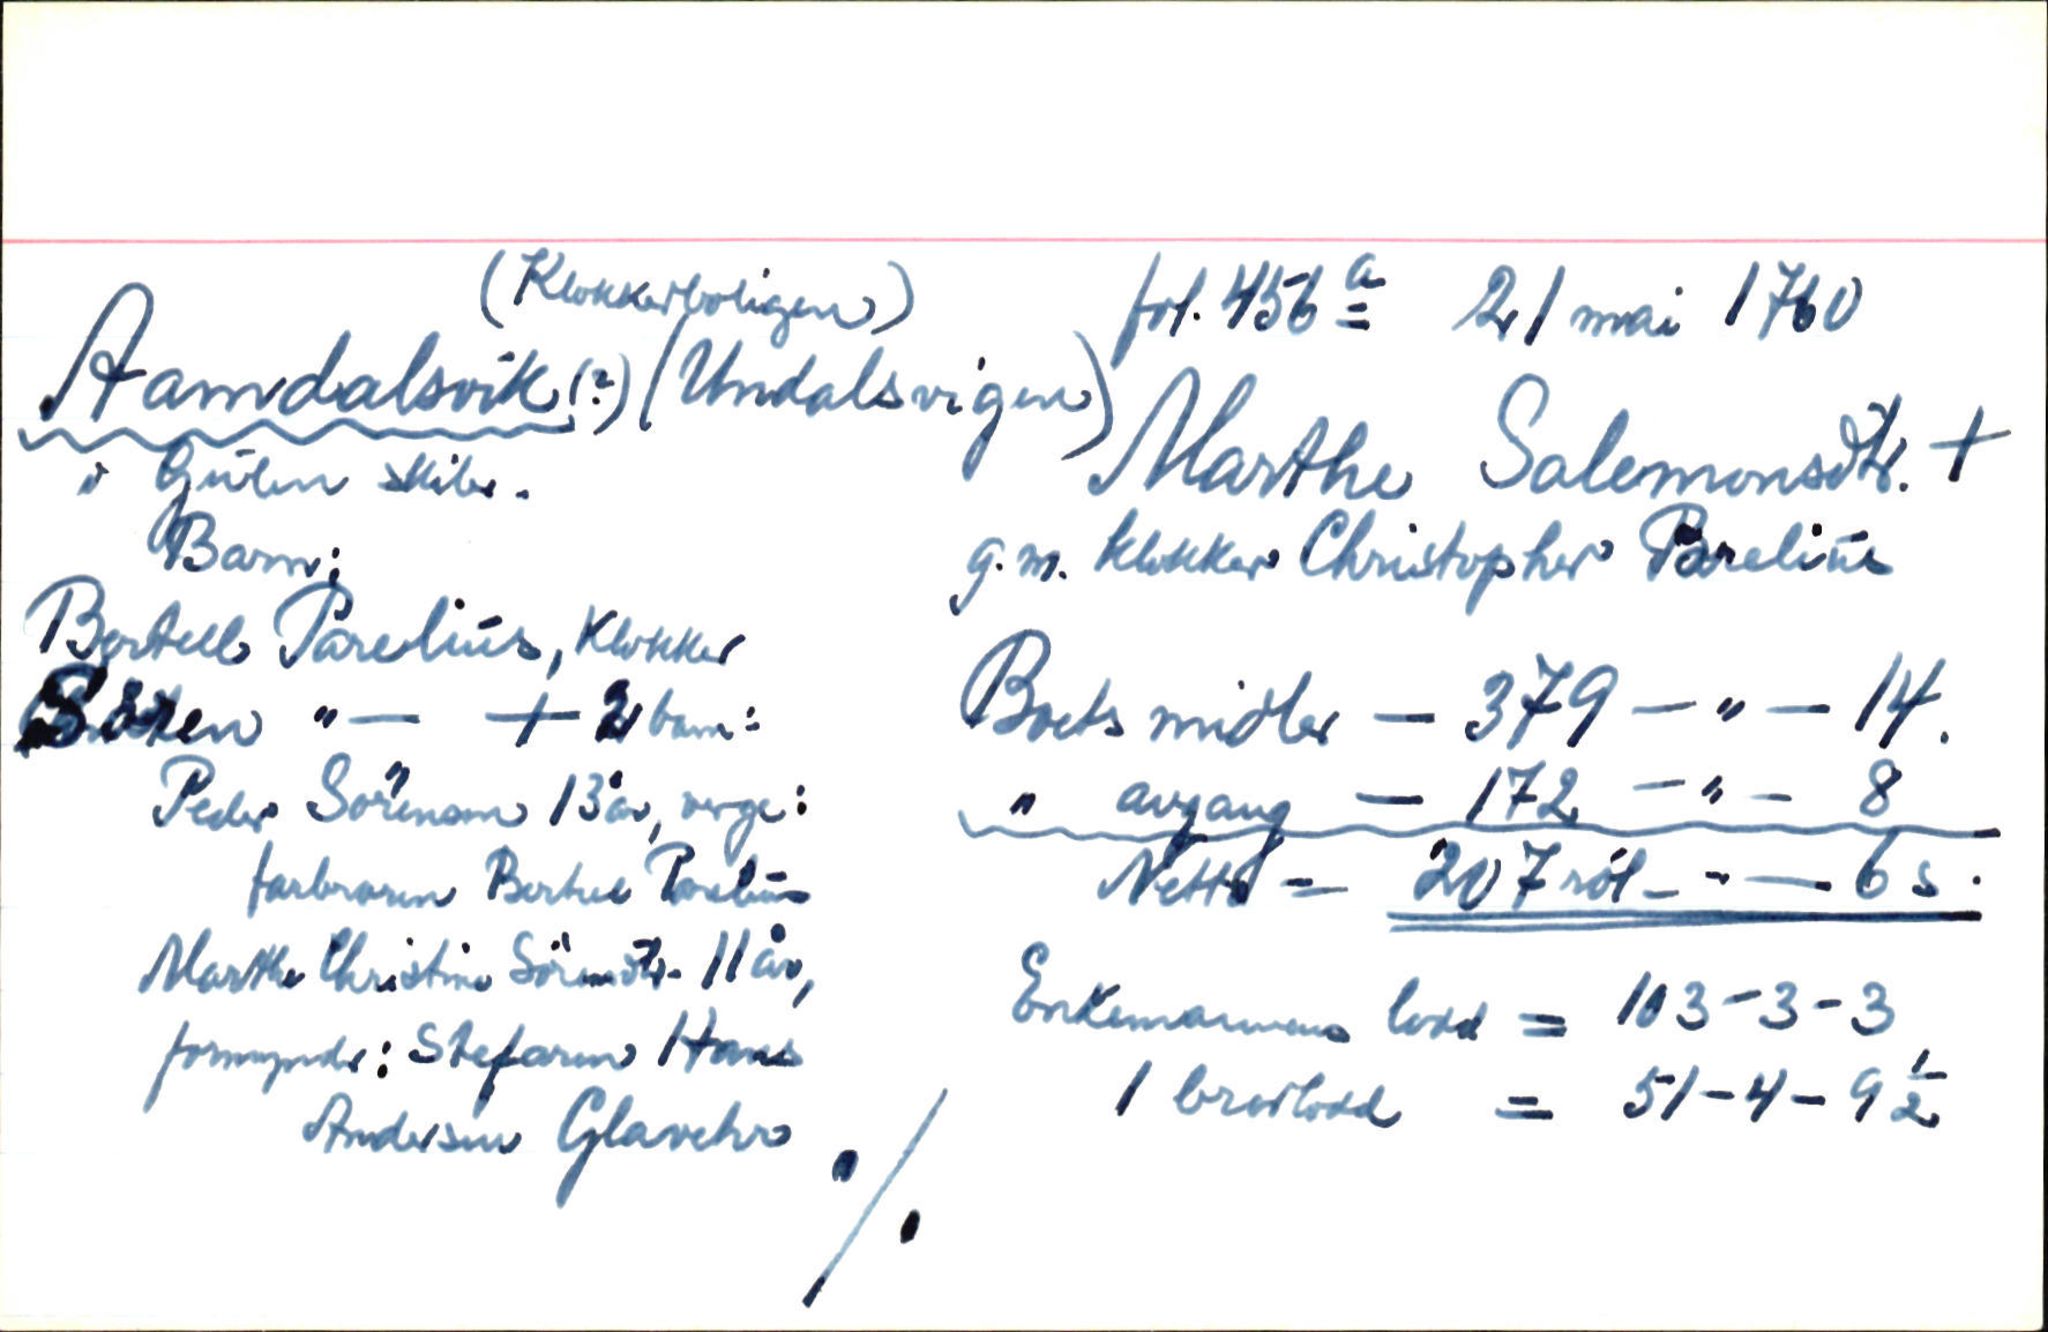 (Klokkerboligen)
Aamdalsvik (?) (Undalsvigen)
i Gulen skibr.
Barn:
Bertell Parelius, klokker
Sören "— + 2 barn:
Peder Sörensen 13 år, verge:
farbroren Bertel Parelius
Marthe Christine Sörensdtr. 11 år,
formynder: Stefaren Hans
Andersen Glavehr
./.
fol. 456 a 21 mai 1760
Marthe Salemonsdtr. +
g.m. klokker Christopher Parelius
Boets midler — 379 — " — 14.
" avgang — 172 — " — 8
Netto = 207 rdl — " — 6 s.
Enkemannens lodd = 103 - 3 - 3
1 brorlodd = 51 - 4 - 9 1/2